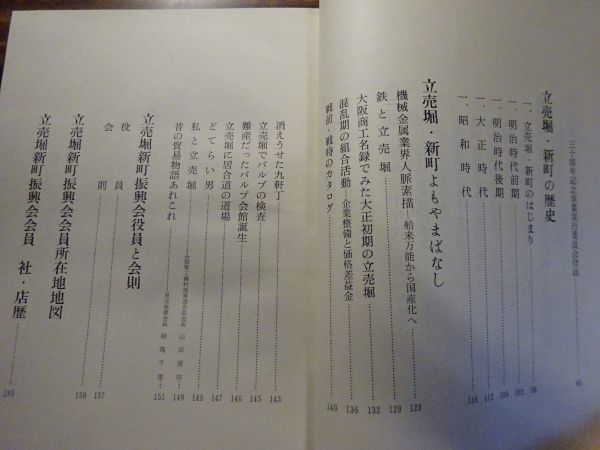 三十周年記念事業実行委員会役員
立売堀・新町の歴史
一、立売堀・新町のはじまり 98
一、明治時代前期 102
一、明治時代後期 108
一、大正時代 112
一、昭和時代 118
立売堀・新町よもやまばなし
機械金属業界人脈素描 舶来万能から国産化へ 123
鉄と立売堀 129
大阪商工名録でみた大正初期の立売堀 132
混乱期の組合活動 企業整備と価格差益金 136
戦前・戦時のカタログ 140
消えうせた九軒丁 143
立売堀でバルブの検査 145
難産だったバルブ会館誕生 146
立売堀に居合道の道場 147
どてらい男 148
私と立売堀 149
昔の貿易物語あれこれ 151
立売堀新町振興会役員と会則
役員
会則 157
立売堀新町振興会会員所在地地図 159
立売堀新町振興会会員 社・店歴 165